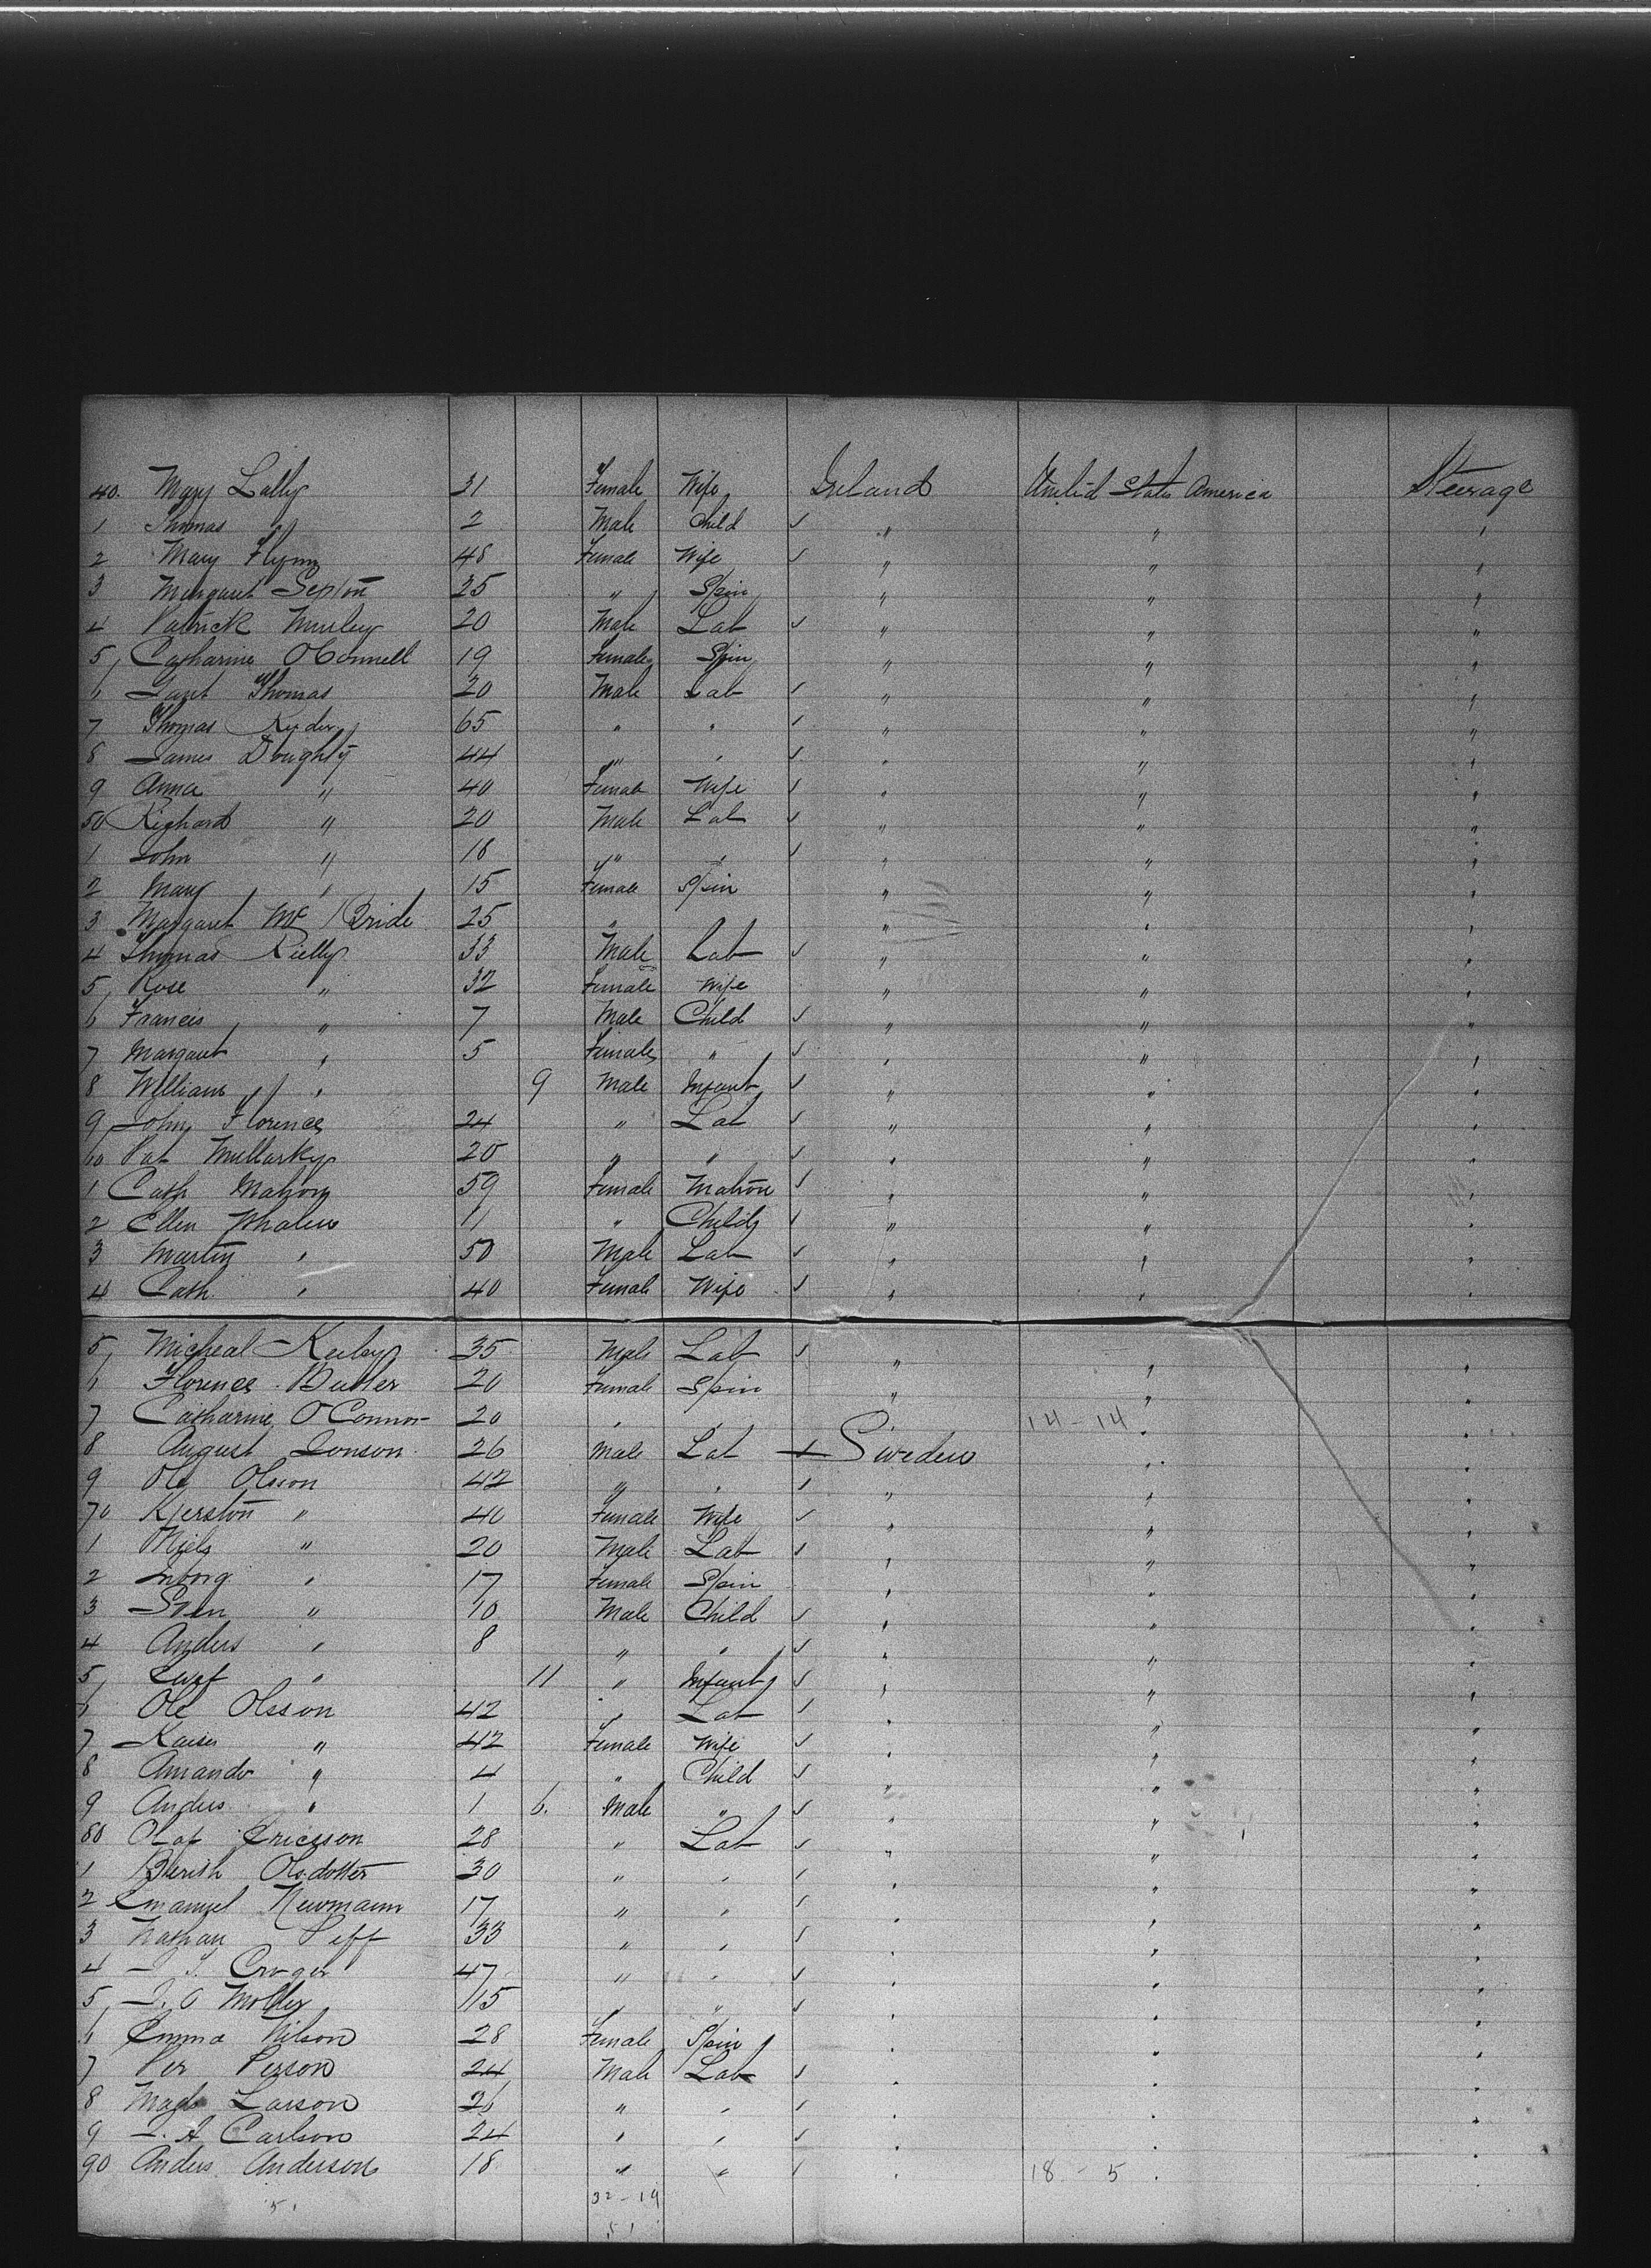 40. Mary Lally 31 Female Wife Ireland United State America Steerage
1 Thomas " 2 Male Child ✓ " " "
2 Mary Flynn 48 Female Wife ✓ " " "
3 Margaret 25 " Spin " " "
4 Patrick 20 Male Lab ✓ " " "
5 Catharine OConnell 19 Female Spin " " "
6 Thomas 20 Male Lab ✓ " " "
7 Thomas 65 " " ✓ " " "
8 James Doughty 44 " " ✓ " " "
9 Anna " 40 Female Wife ✓ " " "
50 Richard " 20 Male Lab ✓ " " "
1 John " 18 " " ✓ " " "
2 Mary " 15 Female Spin " " "
3 Margaret Mc Bride 25 " " " " "
4 Thomas Rielly 33 Male Lab ✓ " " "
5 Rose " 32 Female Wife " " "
6 Francis " 7 Male Child ✓ " " "
7 Margaret " 5 Female " ✓ " " "
8 William " 9 Male Infant ✓ " " "
9 John Florence 24 " Lab ✓ " " "
60 Pat Mullarky 20 " " ✓ " " "
1 Cath 59 Female Matron ✓ " " "
2 Ellen Whalen 11 " Child ✓ " " "
3 Martin " 50 Male Lab ✓ " " "
4 Cath " 40 Female Wife ✓ " " "
5 Micheal 35 Male Lab ✓ " " "
6 Florence Butler 20 Female Spin " " "
7 Catharine O Connor 20 " " 14-14 " "
8 August Jonson 26 Male Lab ✓ Sweden " "
9 Ole Olsson 42 " " ✓ " " "
70 Kjerston " 40 Female Wife ✓ " " "
1 Niels " 20 Male Lab ✓ " " "
2 Inborg " 17 Female Spin " " "
3 Sven " 10 Male Child ✓ " " "
4 Anders " 8 " " ✓ " " "
5 " 11 " Infant ✓ " " "
6 Ole Olsson 42 " Lab ✓ " " "
7 " 42 Female Wife ✓ " " "
8 Amanda " 4 " Child ✓ " " "
9 Anders " 1 6. Male " ✓ " " "
80 Olaf Ericsson 28 " Lab ✓ " " "
1 Olsdotter 30 " " ✓ " " "
2 Emanuel Newmann 17 " " ✓ " " "
3 Nathan 33 " " ✓ " " "
4 Cruger 47 " " ✓ " " "
5 " " ✓ " " "
6 Emma Nilson 28 Female Spin " " "
7 Per Person 24 Male Lab ✓ " " "
8 Larson 26 " " ✓ " " "
9 Carlson 24 " " ✓ " " "
90 Anders Anderson 18 " " ✓ " 18 - 5 " "
51 32-19
51